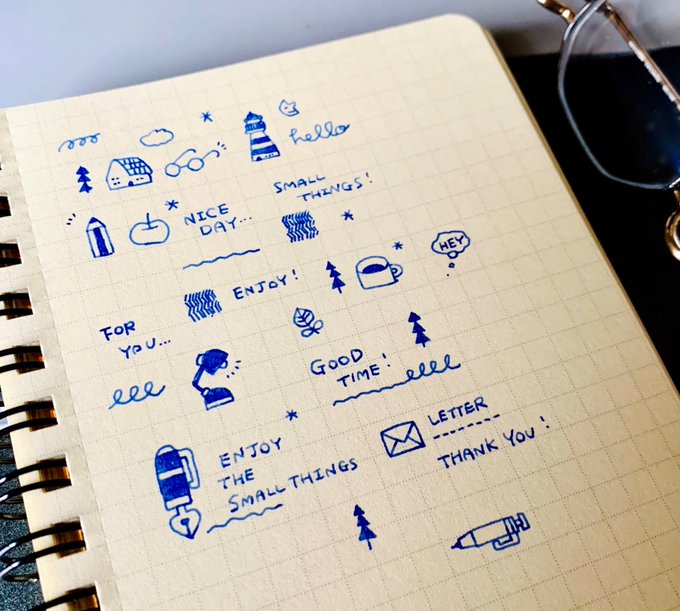 hello
SMALL
THINGS!
NICE
DAY...
HEY
ENJOY!
FOR
YOU...
GOOD
TIME!
LETTER
ENJOY
THE
SMALL THINGS
THANK YOU!